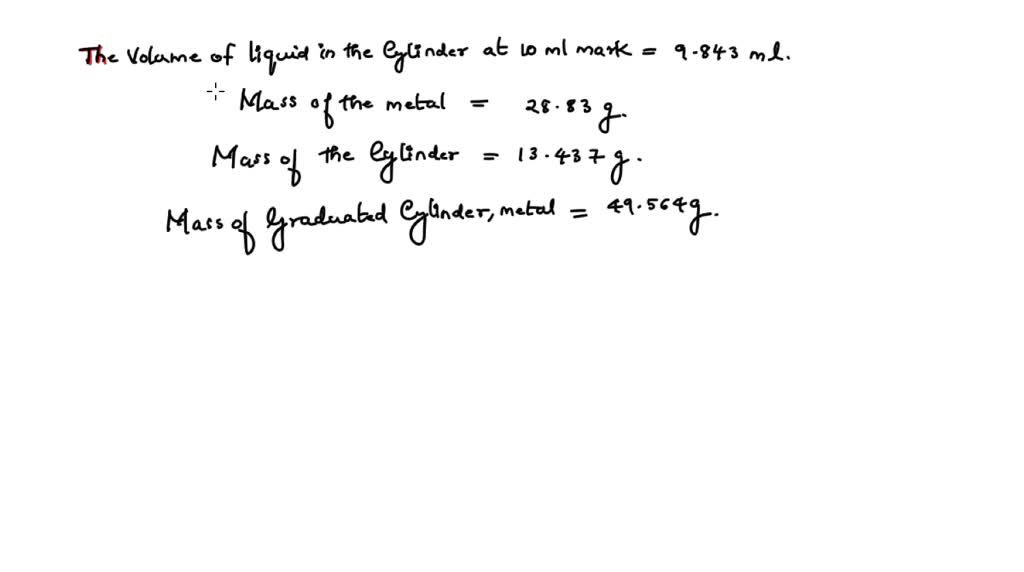 The Volume of liquid in the Cylinder at 10 ml mark = 9.843 ml.
Mass of the metal = 28.83 g.
Mass of the Cylinder = 13.437 g.
Mass of Graduated Cylinder, metal = 49.564 g.